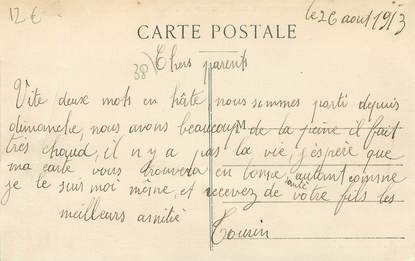 12 €
le 26 aout 1913
CARTE POSTALE
38) Chers parents
Vite deux mots en hâte nous sommes parti depuis
dimanche, nous avons beaucoup M de la peine il fait
très chaud, il n y a pas la vie, j'espère que
ma carte vous trouvera en bonne santé autant comme
je le suis moi même, et recevez de votre fils les
meilleurs amitié